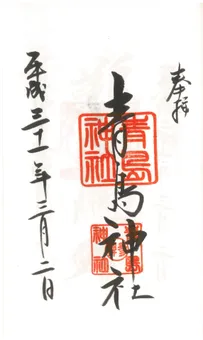 奉拝
青島神社
青島
神社
平成三十一年三月二日